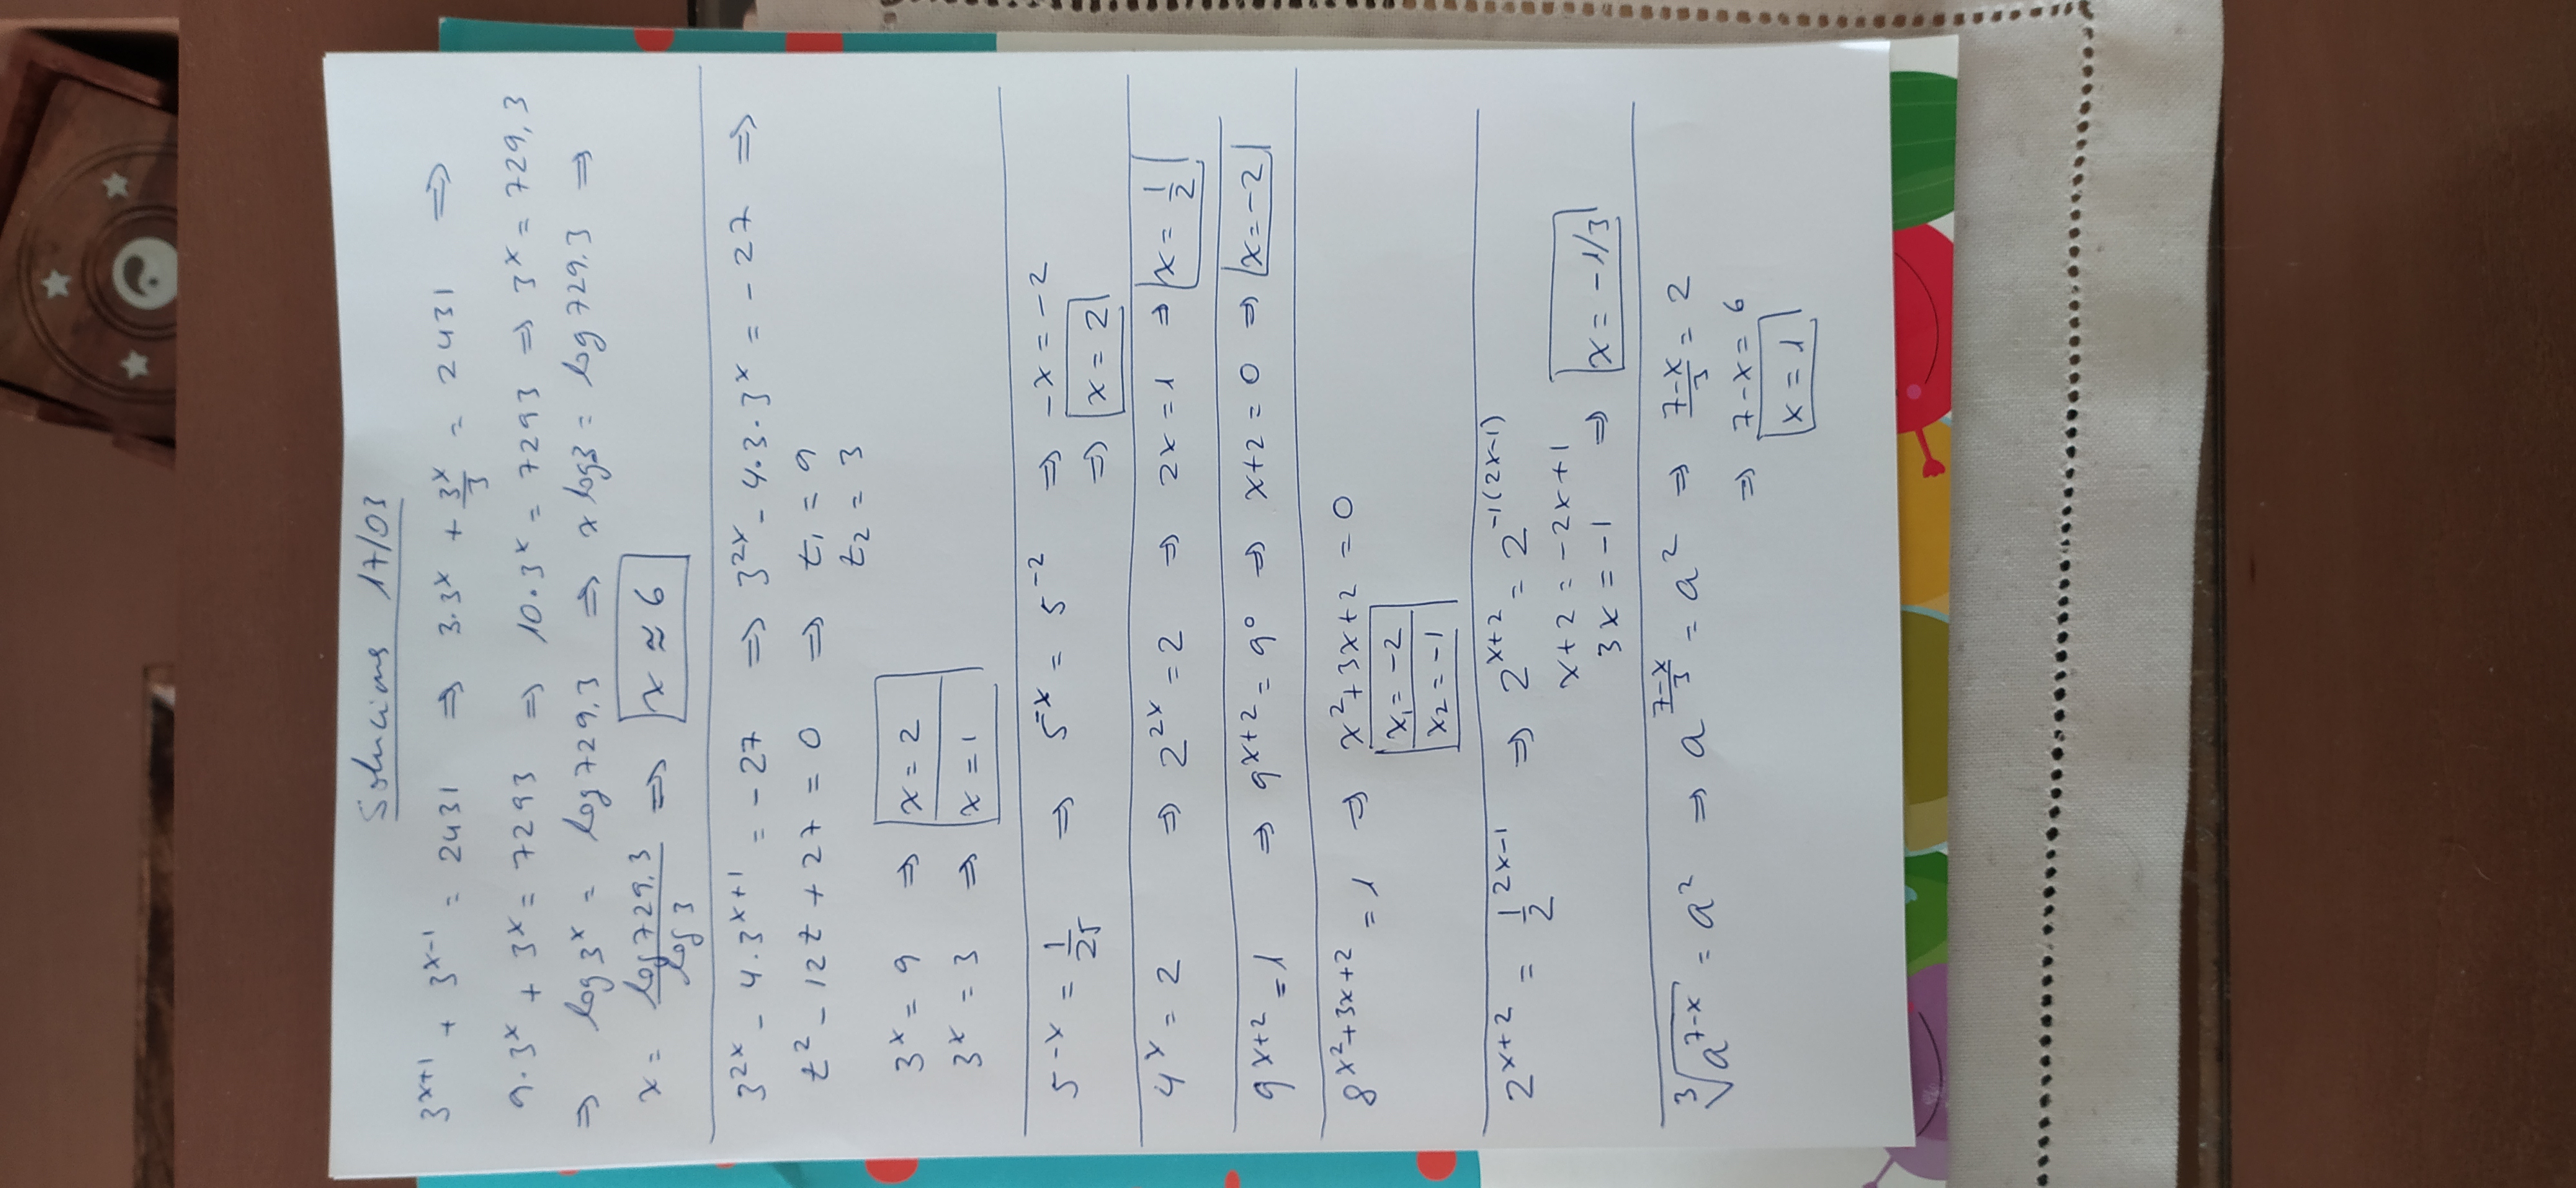 Solucions 17/03
3^{x+1} + 3^{x-1} = 2431 ⇒ 3·3^x + \frac{3^x}{3} = 2431 ⇒
9·3^x + 3^x = 7293 ⇒ 10·3^x = 7293 ⇒ 3^x = 729,3
⇒ log 3^x = log 729,3 ⇒ x log 3 = log 729.3 ⇒
x = \frac{log 729.3}{log 3} ⇒ x ≈ 6
3^{2x} - 4·3^{x+1} = -27 ⇒ 3^{2x} - 4·3·3^x = -27 ⇒
t^2 - 12t + 27 = 0 ⇒ t_1 = 9
t_2 = 3
3^x = 9 ⇒ x = 2
3^x = 3 ⇒ x = 1
5^{-x} = \frac{1}{25} ⇒ 5^{-x} = 5^{-2} ⇒ -x = -2
⇒ x = 2
4^x = 2 ⇒ 2^{2x} = 2 ⇒ 2x = 1 ⇒ x = \frac{1}{2}
9^{x+2} = 1 ⇒ 9^{x+2} = 9^0 ⇒ x+2 = 0 ⇒ x = -2
8^{x^2+3x+2} = 1 ⇒ x^2+3x+2 = 0
x_1 = -2
x_2 = -1
2^{x+2} = \frac{1}{2}^{2x-1} ⇒ 2^{x+2} = 2^{-1(2x-1)}
x+2 = -2x+1
3x = -1 ⇒ x = -1/3
\sqrt[3]{a^{7-x}} = a^2 ⇒ a^{\frac{7-x}{3}} = a^2 ⇒ \frac{7-x}{3} = 2
⇒ 7-x = 6
x = 1